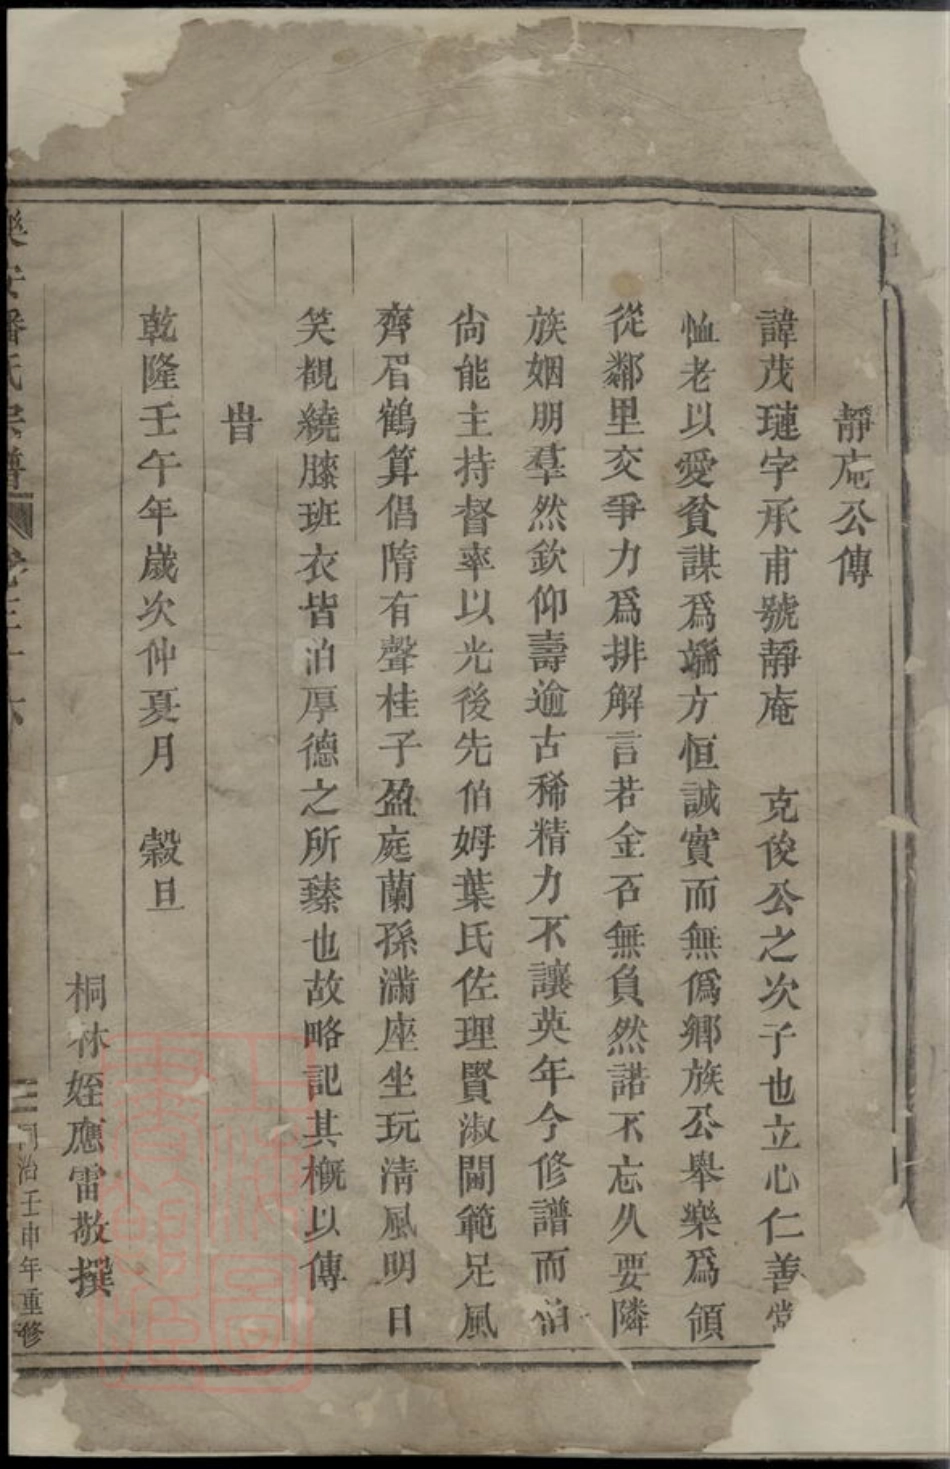 靜庵公傳
諱茂璉字承甫號靜庵 克俊公之次子也立心仁善常
恤老以愛貧謀爲端方恒誠實而無僞鄉族公舉樂爲領
從鄰里交爭力爲排解言若金石無負然諾不忘久要隣
族姻朋羣然欽仰壽逾古稀精力不讓英年今修譜而伯
尙能主持督率以光後先伯姆葉氏佐理賢淑閫範足風
齊眉鶴算倡隋有聲桂子盈庭蘭孫滿座坐玩淸風明日
笑覩繞膝班衣皆泊厚德之所臻也故略記其槪以傳
旹
乾隆壬午年歲次仲夏月 穀旦
桐林姪應雷敬撰
樂安潘氏宗譜 卷三十六 同治壬申年重修
上海圖書館藏